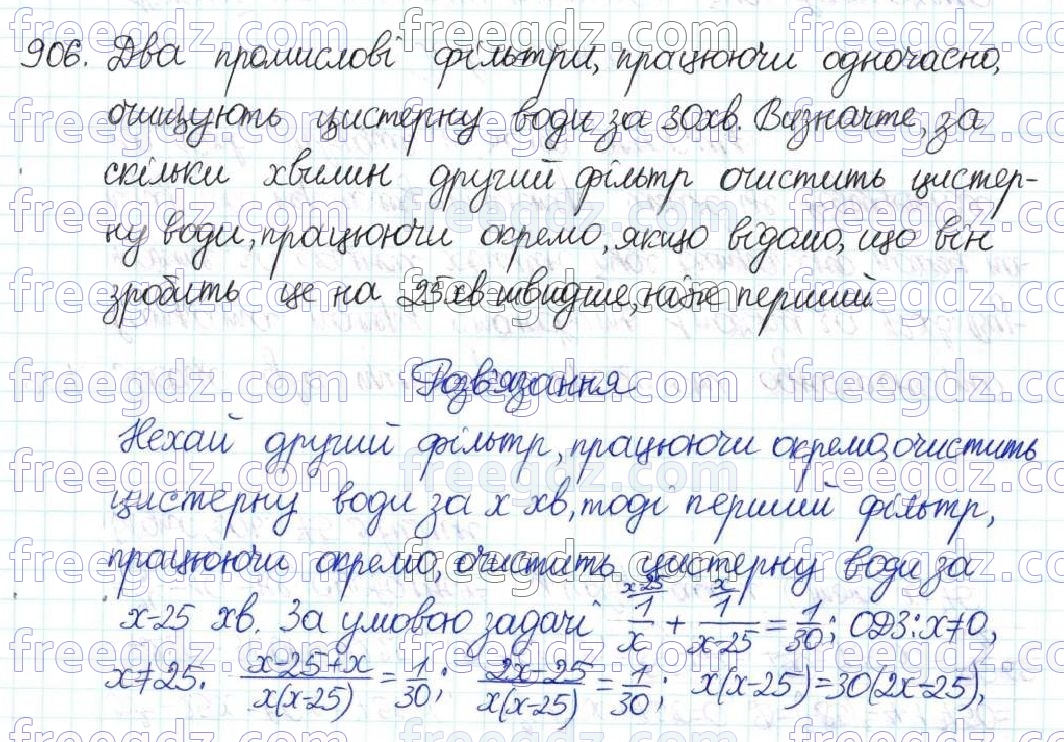 906. Два промислові фільтри, працюючи одночасно,
очищують цистерну води за 30хв. Визначте, за
скільки хвилин другий фільтр очистить цистер-
ну води, працюючи окремо, якщо відомо, що він
зробить це на 25хв швидше, ніж перший.
Розв'язання
Нехай другий фільтр, працюючи окремо, очистить
цистерну води за x хв, тоді перший фільтр,
працюючи окремо, очистить цистерну води за
x-25 хв. За умовою задачі x-25 1/x + x 1/(x-25) = 1/30; ОДЗ: x≠0,
x≠25. (x-25+x)/(x(x-25)) = 1/30; (2x-25)/(x(x-25)) = 1/30; x(x-25)=30(2x-25),
freegdz.com